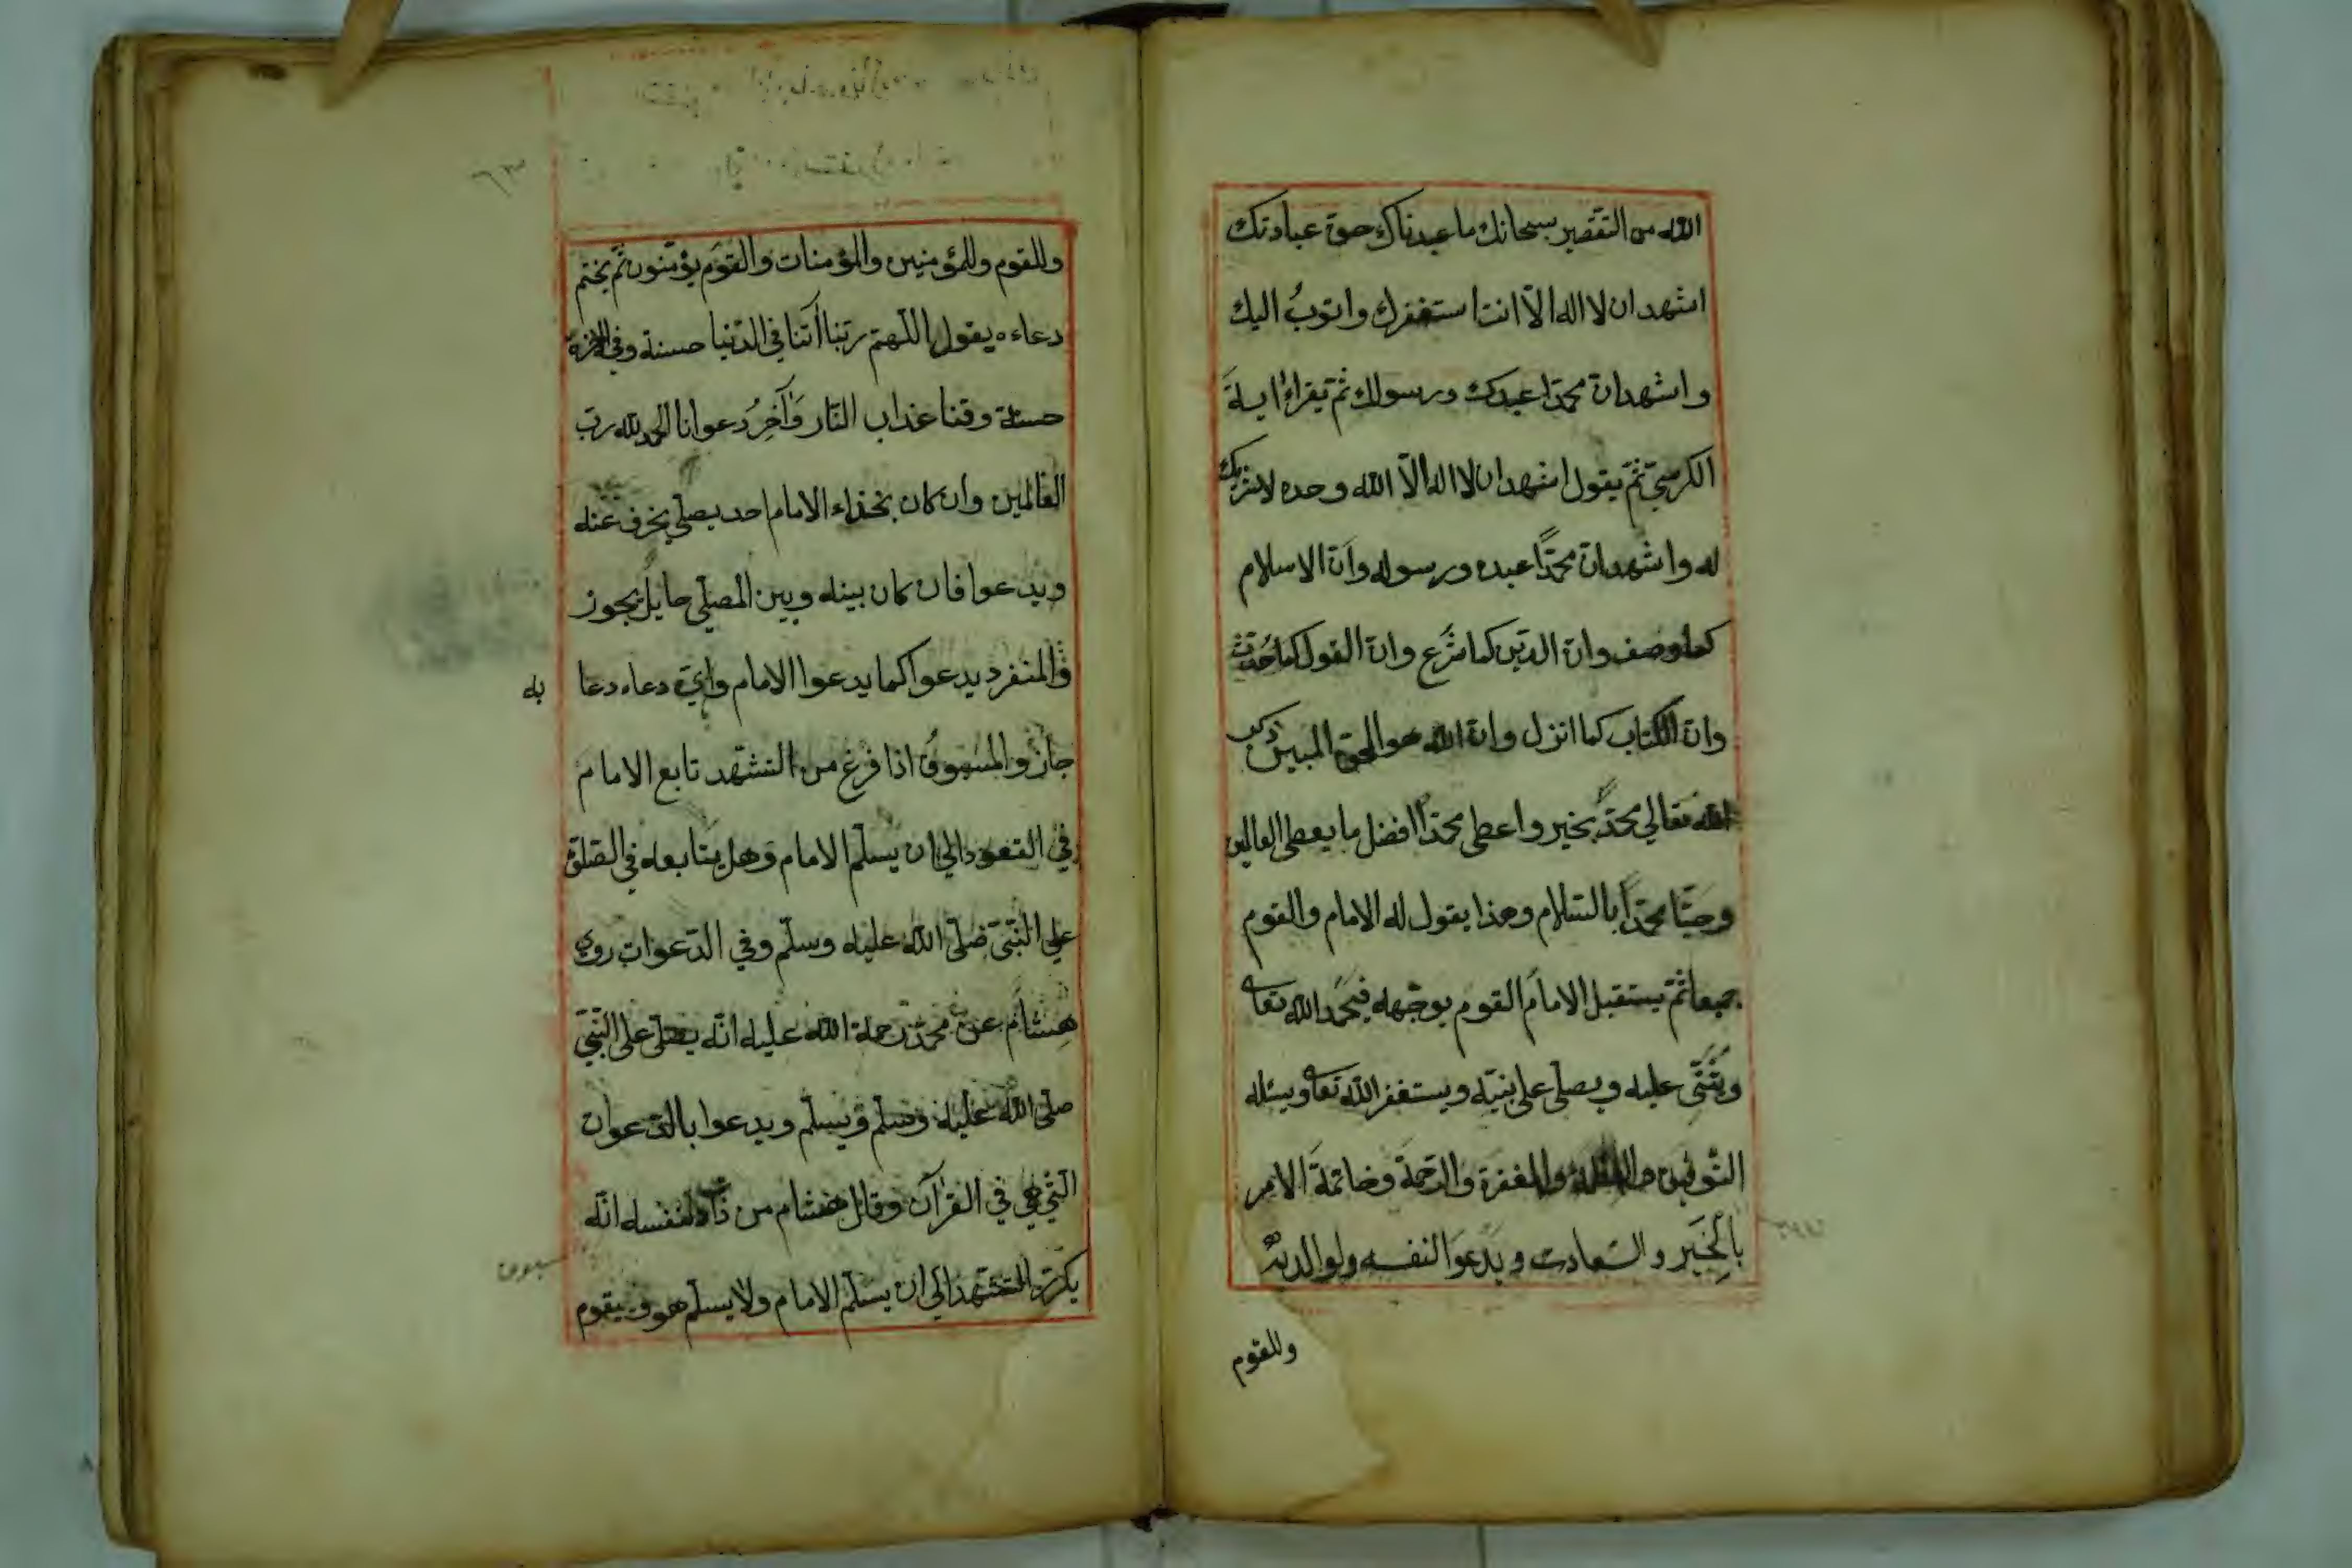 الله من التقصير سبحانك ما عبدناك حق عبادتك
اشهد ان لا اله الّا انت استغفرك واتوبُ اليك
واشهد انّ محمّدا عبدك ورسولك ثم يقراء اية
الكرسي ثمّ يقول اشهد ان لا اله الّا الله وحده لا شريك
له واشهد انّ محمّدًا عبده ورسوله وانّ الاسلام
كما وصف وانّ الدّين كما شرع وانّ القول كما حُدّث
وانّ الكتاب كما انزل وانّ الله هو الحق المبين ذكر
الله تعالي محمّدً بخير واعطى محمّدا افضل ما يعطى العالمين
وحيّا محمّدًا بالسّلام وهذا يقول له الامام والقوم
جميعا ثمّ يستقبل الامام القوم بوجهه فيحمُد الله تعا
ويُثنّى عليه ويصلّي على نبيّه ويستغفر الله تعا ويسئله
التّوفيق والمغفرة والرّحمة وخاتمة الامر
بالخَير والسّعادت ويدعوا لنفسه ولوالديه
وللقوم
وللقوم وللمؤمنين والمؤمنات والقوم يؤمّنون ثمّ يختم
دعاءه يقول اللّهمّ ربّنا أتنا في الدّنيا حسنة وفي الاخرة
حسنة وقنا عذاب النّار وآخِرُ دعوانا الحمد لله ربّ
العالمين وان كان بحذاء الامام احد يصلّي يحرف عنه
ويدعوا فان كان بينه وبين المصلّي حايل يجوز
والمنفرد يدعوا كما يدعوا الامام وايّ دعاء دعا
به
جاز والمسبوق اذا فرغ من التّشهّد تابع الامام
في القعود الي ان يسلّم الامام وهل يتابعه في الصّلوة
علي النّبيّ صلّى الله عليه وسلّم وفي الدّعوات روي
هِشام عن محمّد رحمة الله عليه انّه يصلّي على النّبيّ
صلّى الله عليه وسلّم ويسلّم ويدعوا بالدّعوات
الّتي هي في القرآن وقال هشام من ذات نفسه انّه
يكرّر التّشهّد الي ان يسلّم الامام ولا يسلّم هو ويقوم